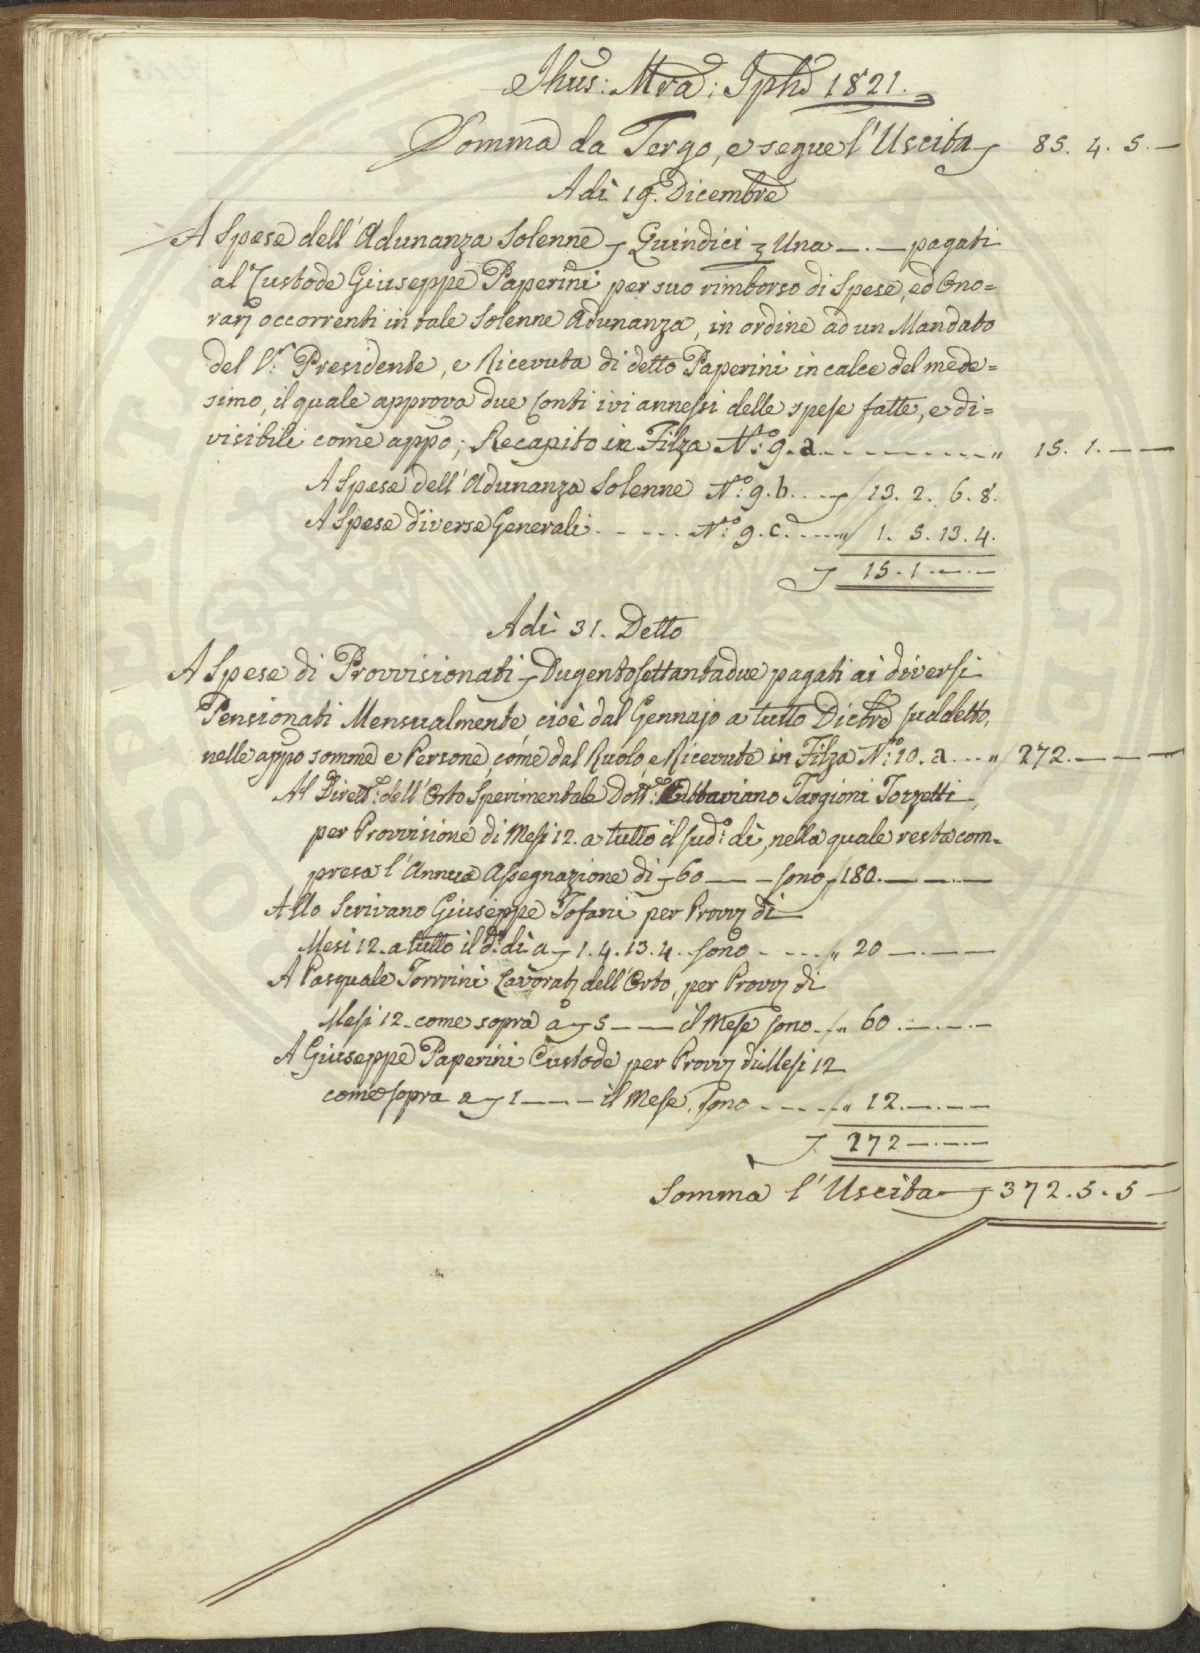 Jhus: Mra: Jphs 1821.
Somma da Tergo, e segue l'Uscita 85. 4. 5. —
Adì 19. Dicembre
A Spese dell'Adunanza Solenne Quindici Una —.— pagati
al Custode Giuseppe Paperini per suo rimborso di Spese, ed Ono=
rarj occorrenti in tale Solenne Adunanza, in ordine ad un Mandato
del V. Presidente, e Ricevuta di detto Paperini in calce del mede=
simo, il quale approva due Conti ivi annessi delle spese fatte, e di=
visibili come appo; Recapito in Filza N.° 9. a........... " 15. 1. — —
A Spese dell'Adunanza Solenne N.° 9. b.... 13. 2. 6. 8.
A Spese diverse Generali ...... N.° 9. C. ...." 1. 5. 13. 4.
15. 1 —.—
Adì 31. Detto
A Spese di Provvisionati Dugentosettantadue pagati ai diversi
Pensionati Mensualmente, cioè dal Gennajo a tutto Dicbre suddetto,
nelle appo somme e Persone, come dal Ruolo, e Ricevute in Filza N.° 10. a .... " 272. — — —
Al Dirett.e dell'Orto Sperimentale Dott.e Ottaviano Targioni Tozzetti,
per Provvisione di Mesi 12. a tutto il sud.° dì, nella quale resta com-
presa l'Annua Assegnazione di 60 — — sono 180. — — —
Allo Scrivano Giuseppe Tofani per Provvj di
Mesi 12. a tutto il d.° dì a 1. 4. 13. 4. sono .... " 20 — — —
A Pasquale Torrini Lavoratj dell'Orto, per Provvj di
Mesi 12. come sopra a 5 — — il Mese sono .. " 60. — — —
A Giuseppe Paperini Custode per Provvj di Mesi 12
come sopra a 1 — — — il Mese, sono ..... " 12. — — —
272 — — —
Somma l'Uscita 372. 5. 5 —